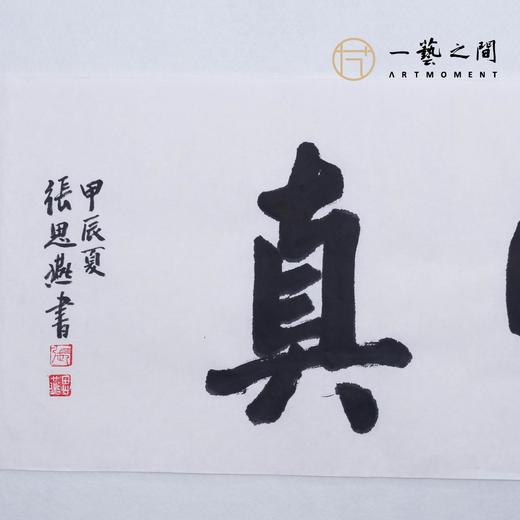 一藝之間
ARTMOMENT
真
甲辰夏
張思燕書